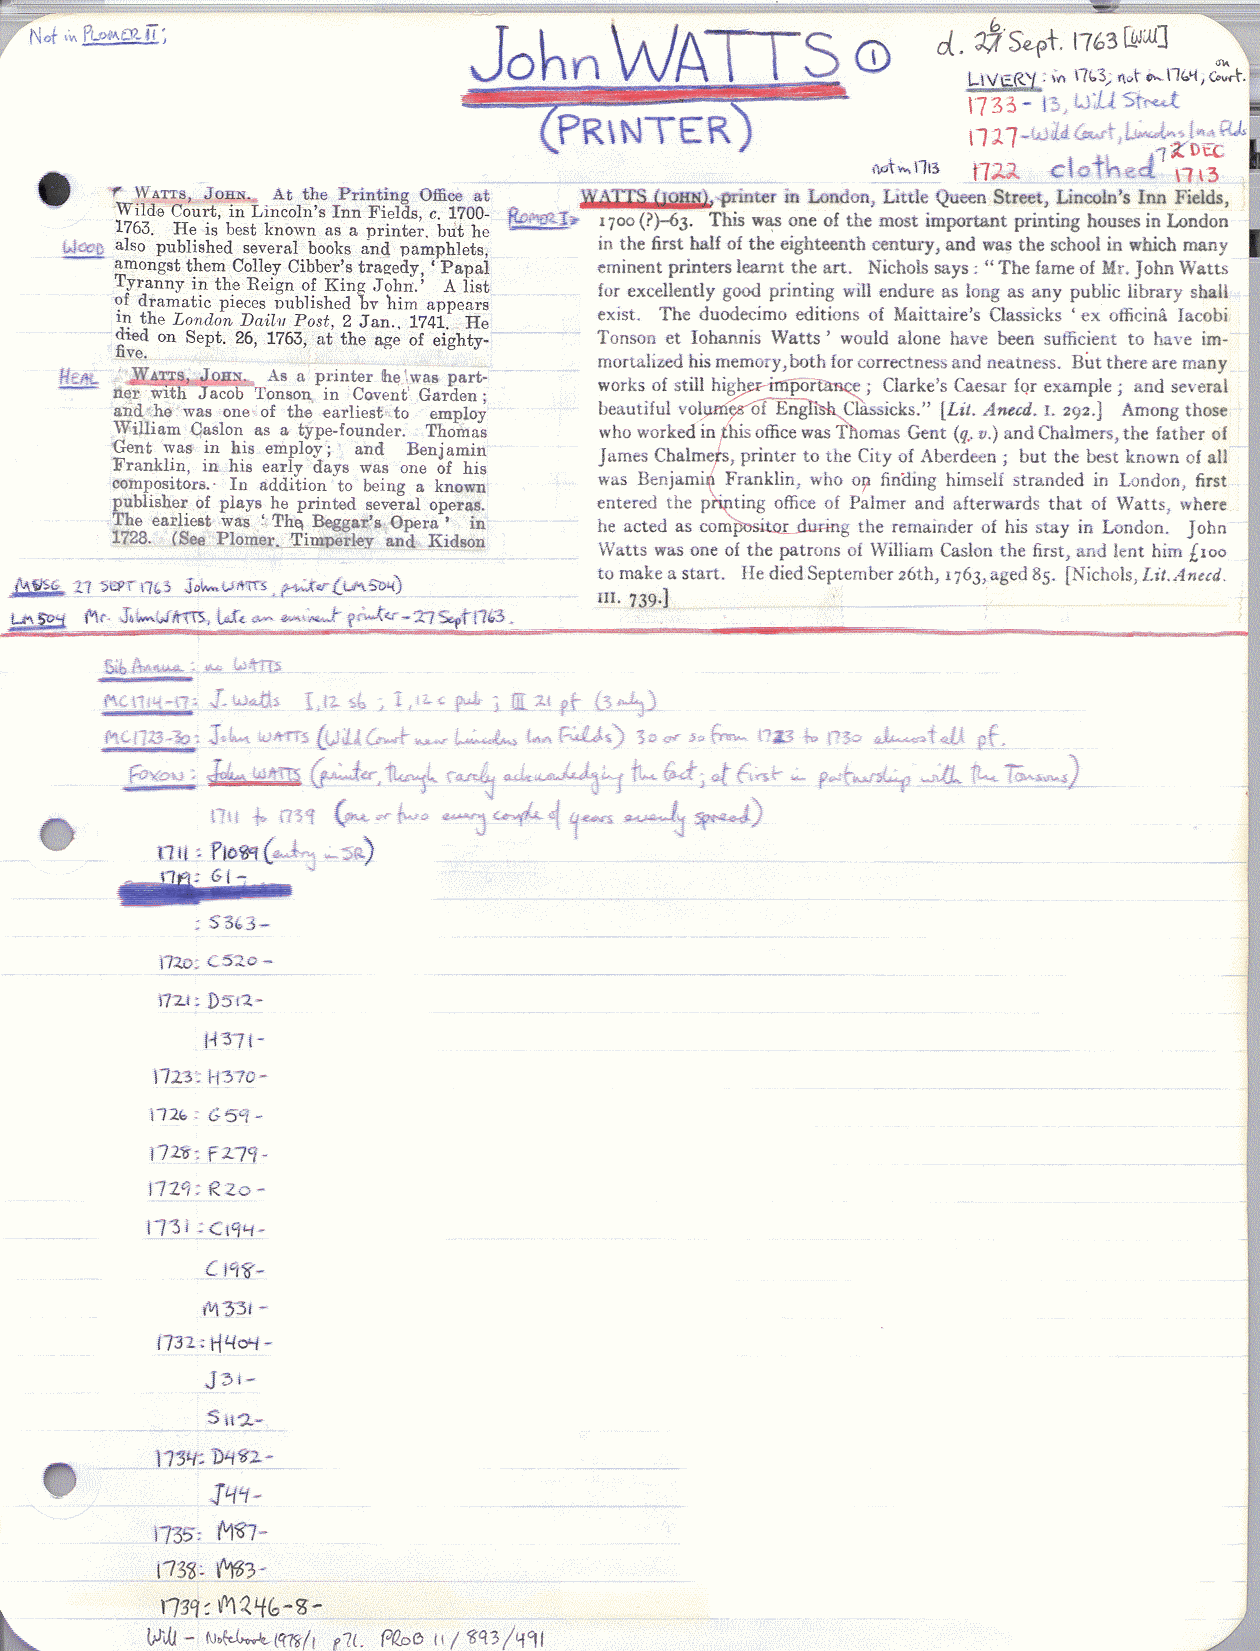 Not in PLOMER II;
John WATTS ①
(PRINTER)
d. 26 Sept. 1763 [Will]
LIVERY: in 1763; not on 1764, on Court.
1733 - 13, Wild Street
1727 - Wild Court, Lincolns Inn Flds
not in 1713 1722 clothed 7 DEC 1713
WOOD
WATTS, JOHN. At the Printing Office at
Wilde Court, in Lincoln's Inn Fields, c. 1700-
1763. He is best known as a printer, but he
also published several books and pamphlets,
amongst them Colley Cibber's tragedy, 'Papal
Tyranny in the Reign of King John.' A list
of dramatic pieces published by him appears
in the London Daily Post, 2 Jan., 1741. He
died on Sept. 26, 1763, at the age of eighty-
five.
HEAL
WATTS, JOHN. As a printer he was part-
ner with Jacob Tonson in Covent Garden;
and he was one of the earliest to employ
William Caslon as a type-founder. Thomas
Gent was in his employ; and Benjamin
Franklin, in his early days was one of his
compositors. In addition to being a known
publisher of plays he printed several operas.
The earliest was 'The Beggar's Opera' in
1728. (See Plomer, Timperley and Kidson
PLOMER I
WATTS (JOHN), printer in London, Little Queen Street, Lincoln's Inn Fields,
1700 (?)-63. This was one of the most important printing houses in London
in the first half of the eighteenth century, and was the school in which many
eminent printers learnt the art. Nichols says : "The fame of Mr. John Watts
for excellently good printing will endure as long as any public library shall
exist. The duodecimo editions of Maittaire's Classicks 'ex officinâ Iacobi
Tonson et Iohannis Watts' would alone have been sufficient to have im-
mortalized his memory, both for correctness and neatness. But there are many
works of still higher importance ; Clarke's Caesar for example ; and several
beautiful volumes of English Classicks." [Lit. Anecd. I. 292.] Among those
who worked in this office was Thomas Gent (q. v.) and Chalmers, the father of
James Chalmers, printer to the City of Aberdeen ; but the best known of all
was Benjamin Franklin, who on finding himself stranded in London, first
entered the printing office of Palmer and afterwards that of Watts, where
he acted as compositor during the remainder of his stay in London. John
Watts was one of the patrons of William Caslon the first, and lent him £100
to make a start. He died September 26th, 1763, aged 85. [Nichols, Lit. Anecd.
III. 739.]
MUSG 27 SEPT 1763 John WATTS, printer (LM 504)
LM 504 Mr. John WATTS, late an eminent printer - 27 Sept 1763.
Bib Annua: no WATTS
MC1714-17: J. Watts I, 12 sb ; I, 12 c pub ; III 21 pf (3 only)
MC1723-30: John WATTS (Wild Court near Lincolns Inn Fields) 30 or so from 1723 to 1730 almost all pf.
FOXON: John WATTS (printer, though rarely acknowledging the fact; at first in partnership with the Tonsons)
1711 to 1739 (one or two every couple of years evenly spread)
1711: P1089 (entry in SR)
1719: G1-
: S363-
1720: C520-
1721: D512-
H371-
1723: H370-
1726: G59-
1728: F279-
1729: R20-
1731: C194-
C198-
M331-
1732: H404-
J31-
S112-
1734: D482-
J44-
1735: M87-
1738: M83-
1739: M246-8-
Will - Notebook 1978/1 p71. PROB 11/893/491